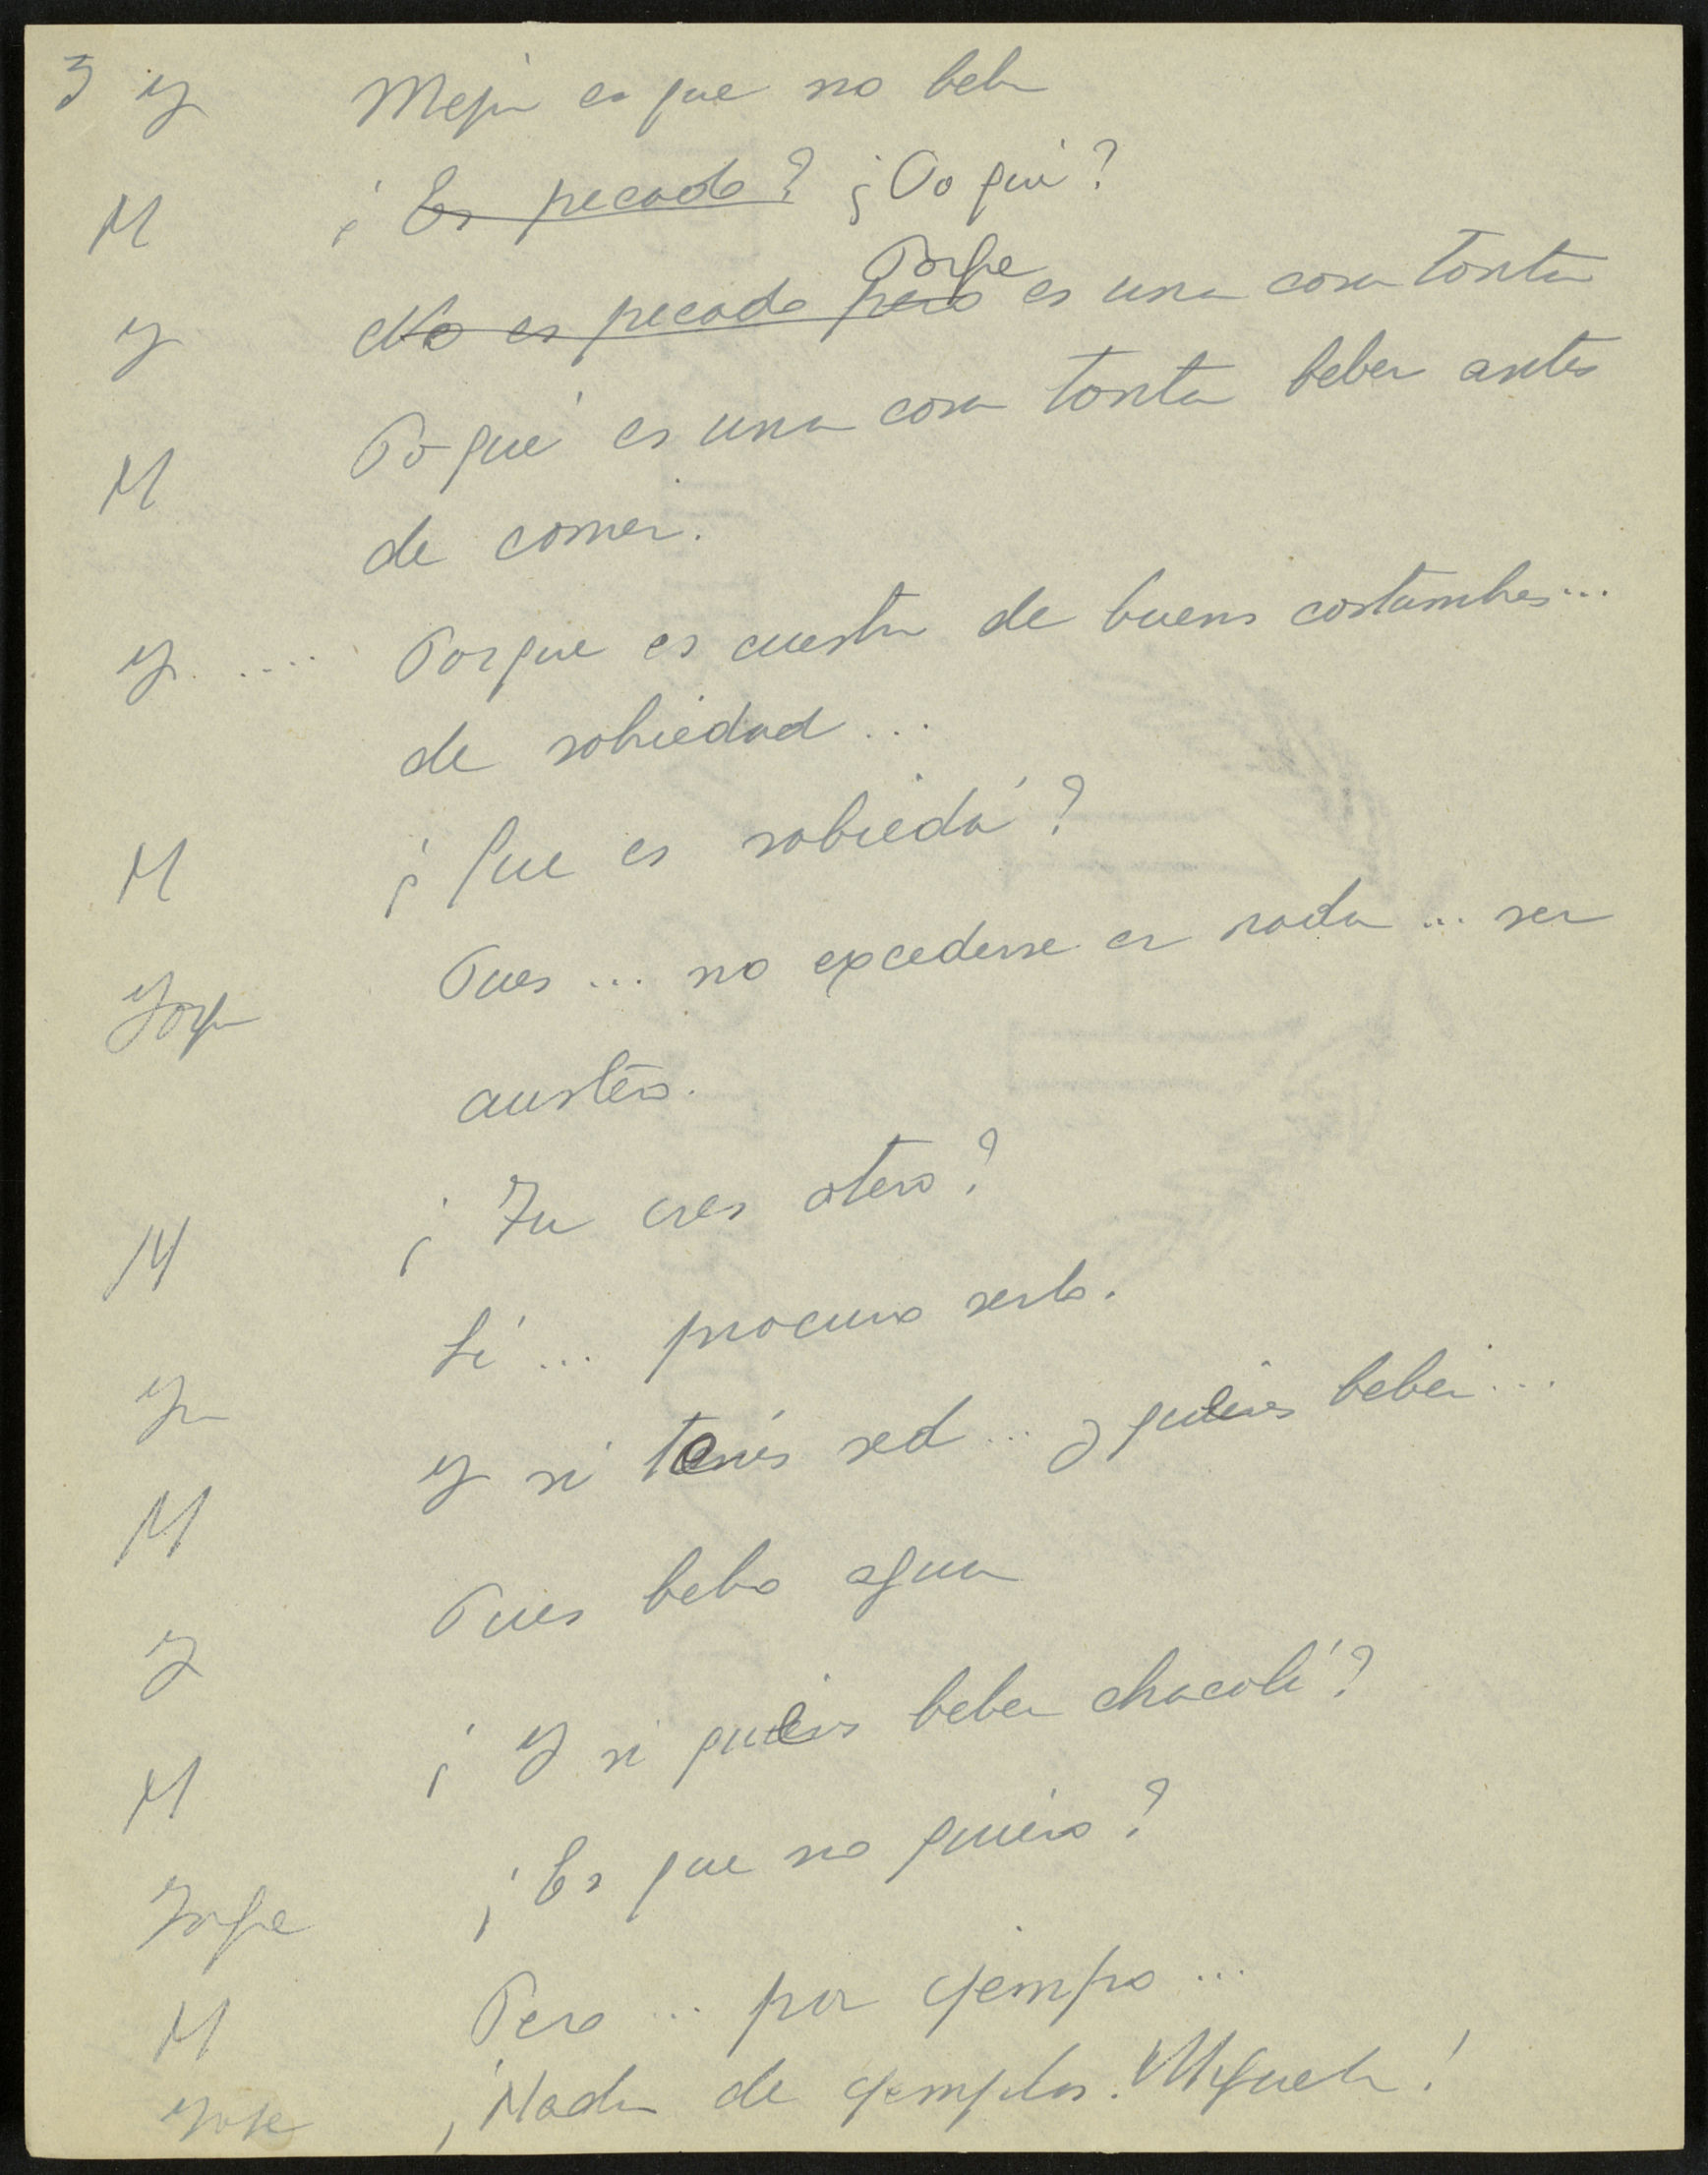 3 Y Mejor es que no beba
M ¿Es pecado? ¿Po qué?
Porque
Y No es pecado pero es una cosa tonta
M Po qué es una cosa tonta beber antes
de comer.
Y .... Porque es cuestn de buens costumbres...
de sobriedad ...
M ¿Que es sobriedá?
Jorge Pues ... no excederse en nada ... ser
austero.
M ¿Tu eres otero?
Sí ... procuro serlo.
M Y si tenés sed ... y quieres beber ...
Y Pues bebo agua
M ¿Y si quieres beber chacolí?
Jorge ¿Es que no quiero?
M Pero ... por ejempro ...
Jorge ¡Nada de ejemplos. Miguela!